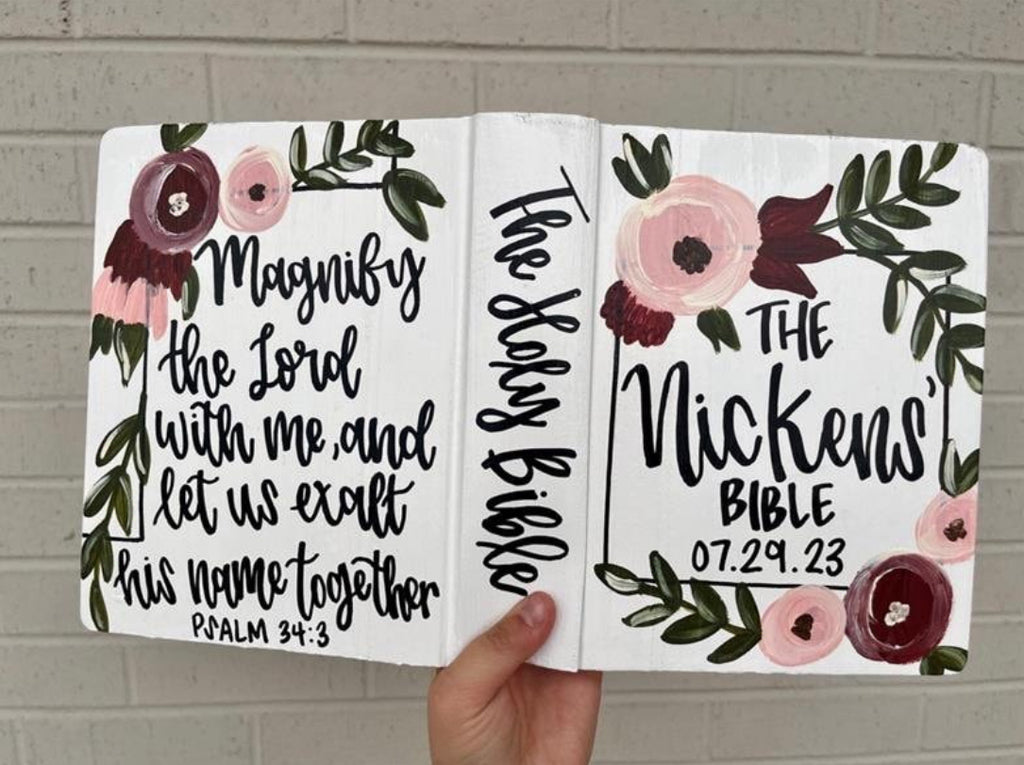 Magnify
the Lord
with me, and
let us exalt
his name together
PSALM 34:3
The Holy Bible
THE
Nickens'
BIBLE
07.29.23